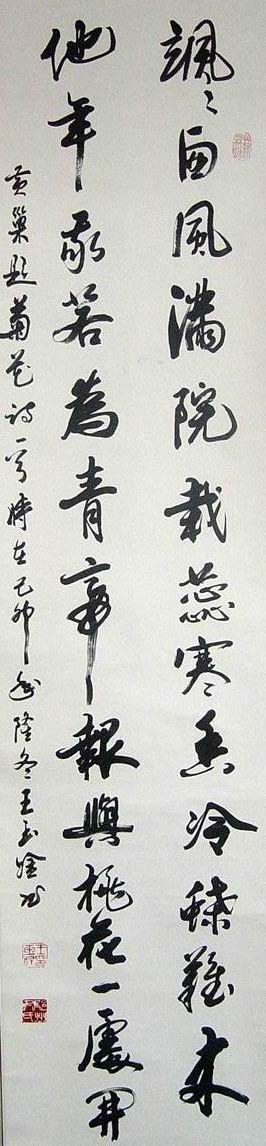 颯〻西風滿院栽蕊寒香冷蝶難来
他年我若為青帝報與桃花一處開
黄巢題菊花詩一首時在己卯年隆冬王玉